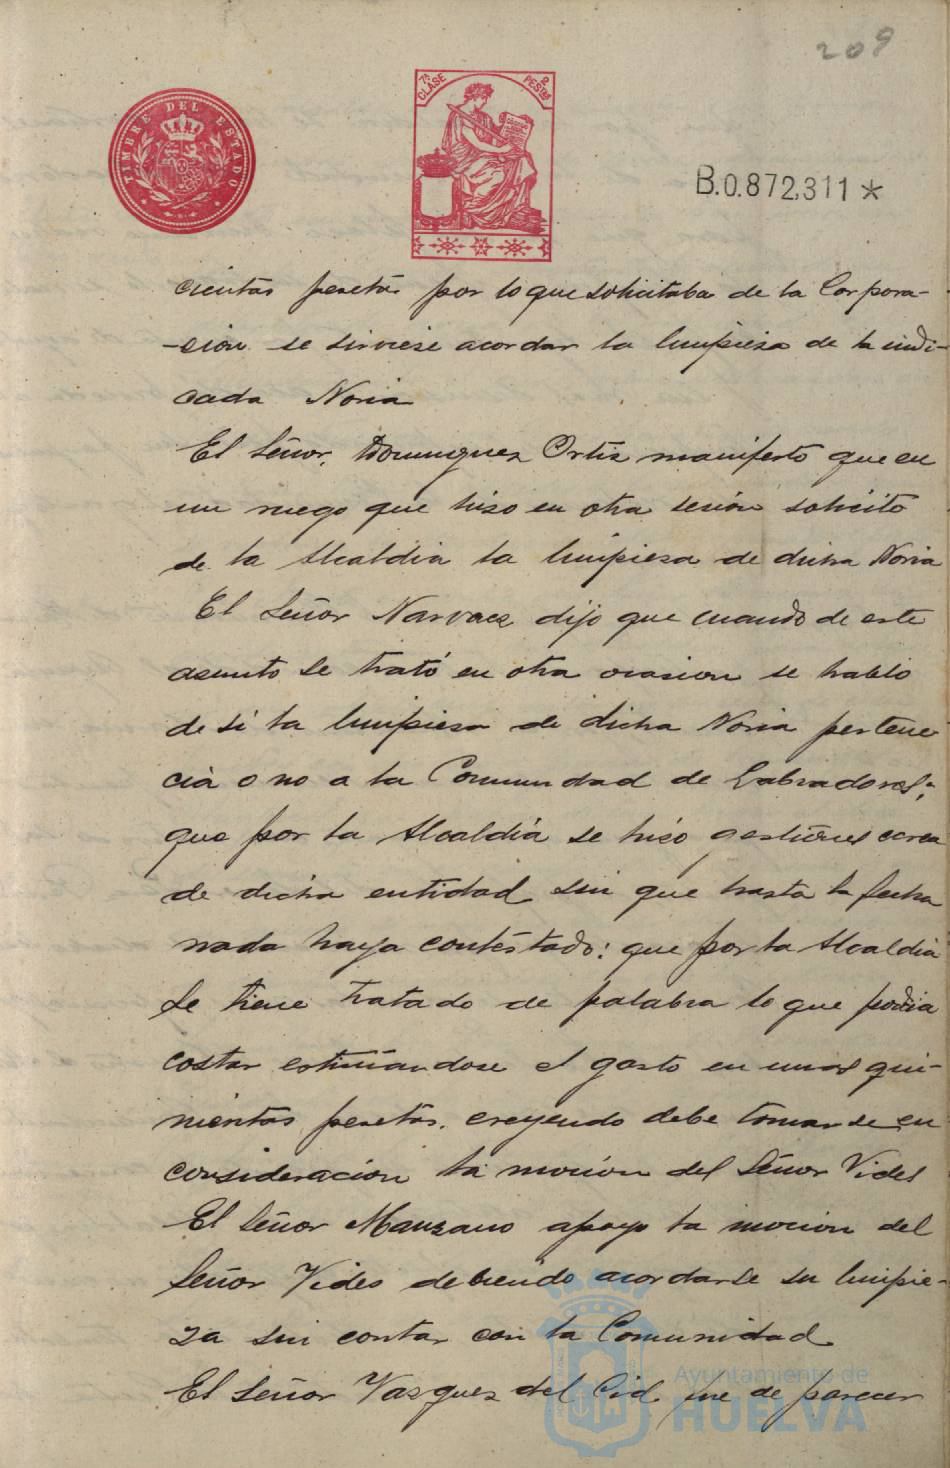 209
TIMBRE DEL ESTADO
7ª CLASE
2 PESTAS
B.0.872,311*
cientas pesetas por lo que solicitaba de la Corpora-
-cion se sirviese acordar la limpiesa de la indi-
cada Noria
El Señor Dominguez Ortiz manifestó que en
un ruego que hiso en otra sesión solicitó
de la Alcaldia la limpiesa de dicha Noria
El Señor Narvaez dijo que cuando de este
asunto se trató en otra ocasion se habló
de si la limpiesa de dicha Noria pertene
cia o no a la Comunidad de Labradores;
que por la Alcaldia se hiso gestiones cerca
de dicha entidad sin que hasta la fecha
nada haya contestado: que por la Alcaldia
se tiene tratado de palabra lo que podia
costar estimandose el gasto en unas qui-
nientas pesetas, creyendo debe tomarse en
consideracion la mocion del Señor Vides
El Señor Manzano apoyo la mocion del
Señor Vides debiendo acordarse su limpie-
za sin contar con la Comunidad
El Señor Vazquez del Cid fue de parecer
Ayuntamiento de
HUELVA